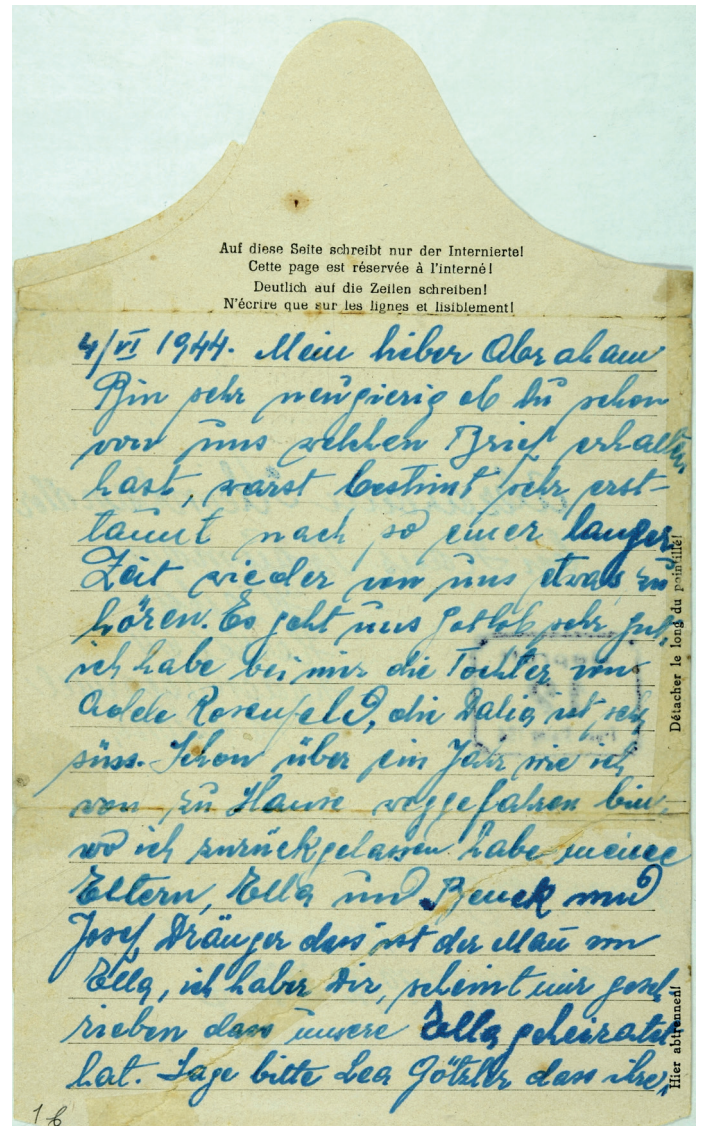 Auf diese Seite schreibt nur der Internierte!
Cette page est réservée à l'interné!
Deutlich auf die Zeilen schreiben!
N'écrire que sur les lignes et lisiblement!
4/VI 1944. Mein lieber Abraham
Bin sehr neugierig ob du schon
von uns welchen Brief erhalten
hast, warst bestimt sehr erst-
taunt nach so einer langer
Zeit wieder von uns etwas zu
hören. Es geht uns Gotlob sehr gut,
ich habe bei mir die Tochter von
Adde Rosenfeld, die Dalia ist sehr
süss. Schon über ein Jahr wie ich
von zu Hause weggefahren bin,
wo ich zurückgelassen habe meine
Eltern, Ella und Benek und
Josef Dränger dass ist der Man von
Ella, ich habe Dir, scheint mir gesch-
rieben dass unsere Ella geheiratet
hat. Sage bitte Lea Götzler dass ihre
Détacher le long du pointillé!
Hier abtrennen!
16